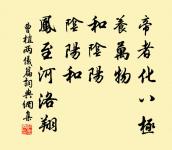 帝者化八極
養萬物
和陰陽
陰陽和
鳳至河洛翔
曹植兩儀篇詞典網集